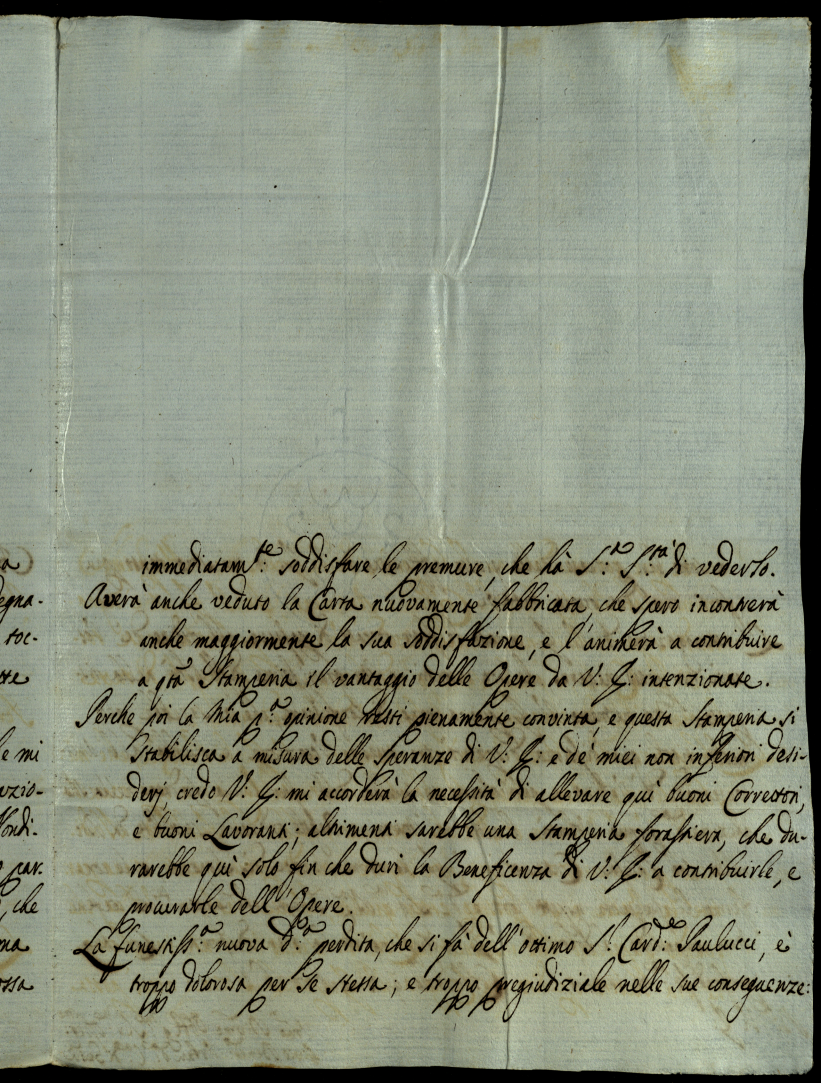 a
egna-
toc-
tte
e mi
azio-
ondi-
par.
, che
ma
ossa
immediatam:te soddisfare le premure, che hà S:a S:tà di vederlo.
Averà anche veduto la Carta nuovamente fabbricata, che spero incontrerà
anche maggiormente la sua soddisfazione, e l'animerà a contribuire
a qta Stamperia il vantaggio delle Opere da V: I: intenzionate.
Perche poi la mia p:a opinione resti pienamente convinta, e questa Stamperia si
stabilisca a misura delle Speranze di V: I: e de' miei non inferiori desi-
derj, credo V: I: mi accorderà la necessità di allevare quì buoni Correttori,
e buoni Lavoranti; altrimenti sarebbe una Stamperia forastiera, che du-
rarebbe quì solo fin che duri la Beneficenza di V: I: a contribuirle, e
procurarle dell'Opere.
La funestiss:a nuova d:a perdita, che si fà dell'ottimo S:r Card:e Paulucci, è
troppo dolorosa per se stessa; e troppo pregiudiziale nelle sue conseguenze: